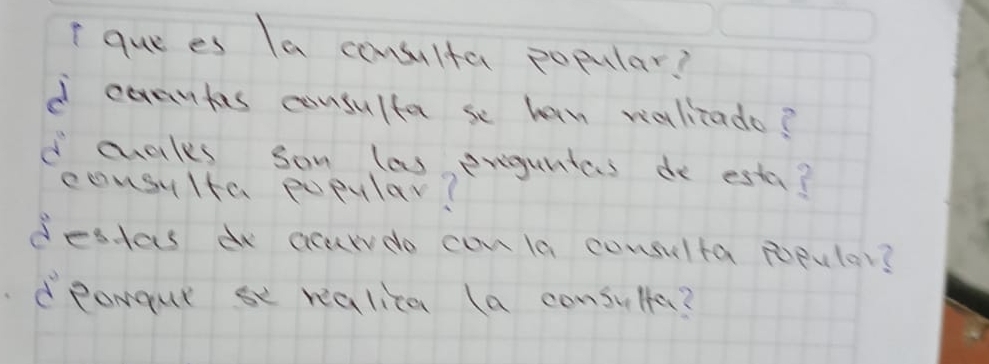 ¿ que es la consulta popular?
¿ cuantas consulta se han realizado?
¿ cuales son las preguntas de esta?
consulta popular?
¿estas de acuerdo con la consulta popular?
¿Porque se realiza la consulta?